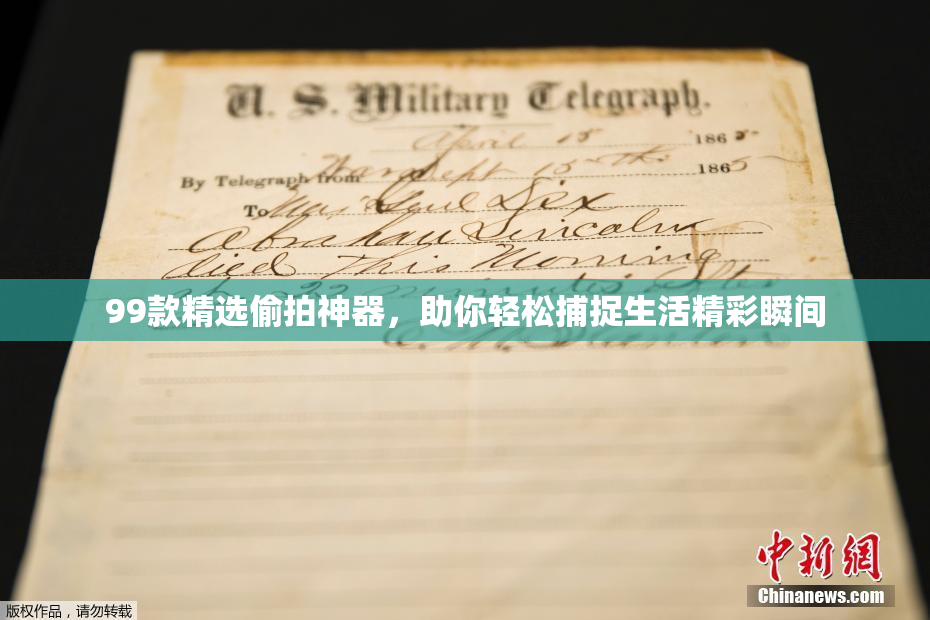 U. S. Military Telegraph.
April 15 1865-
By Telegraph from War Dept 15th 1865
To Maj Genl Dix
Abraham Lincoln
died This Morning
22 minutes after
99款精选偷拍神器，助你轻松捕捉生活精彩瞬间
E. M. Stanton
中新網
Chinanews.com
版权作品，请勿转载